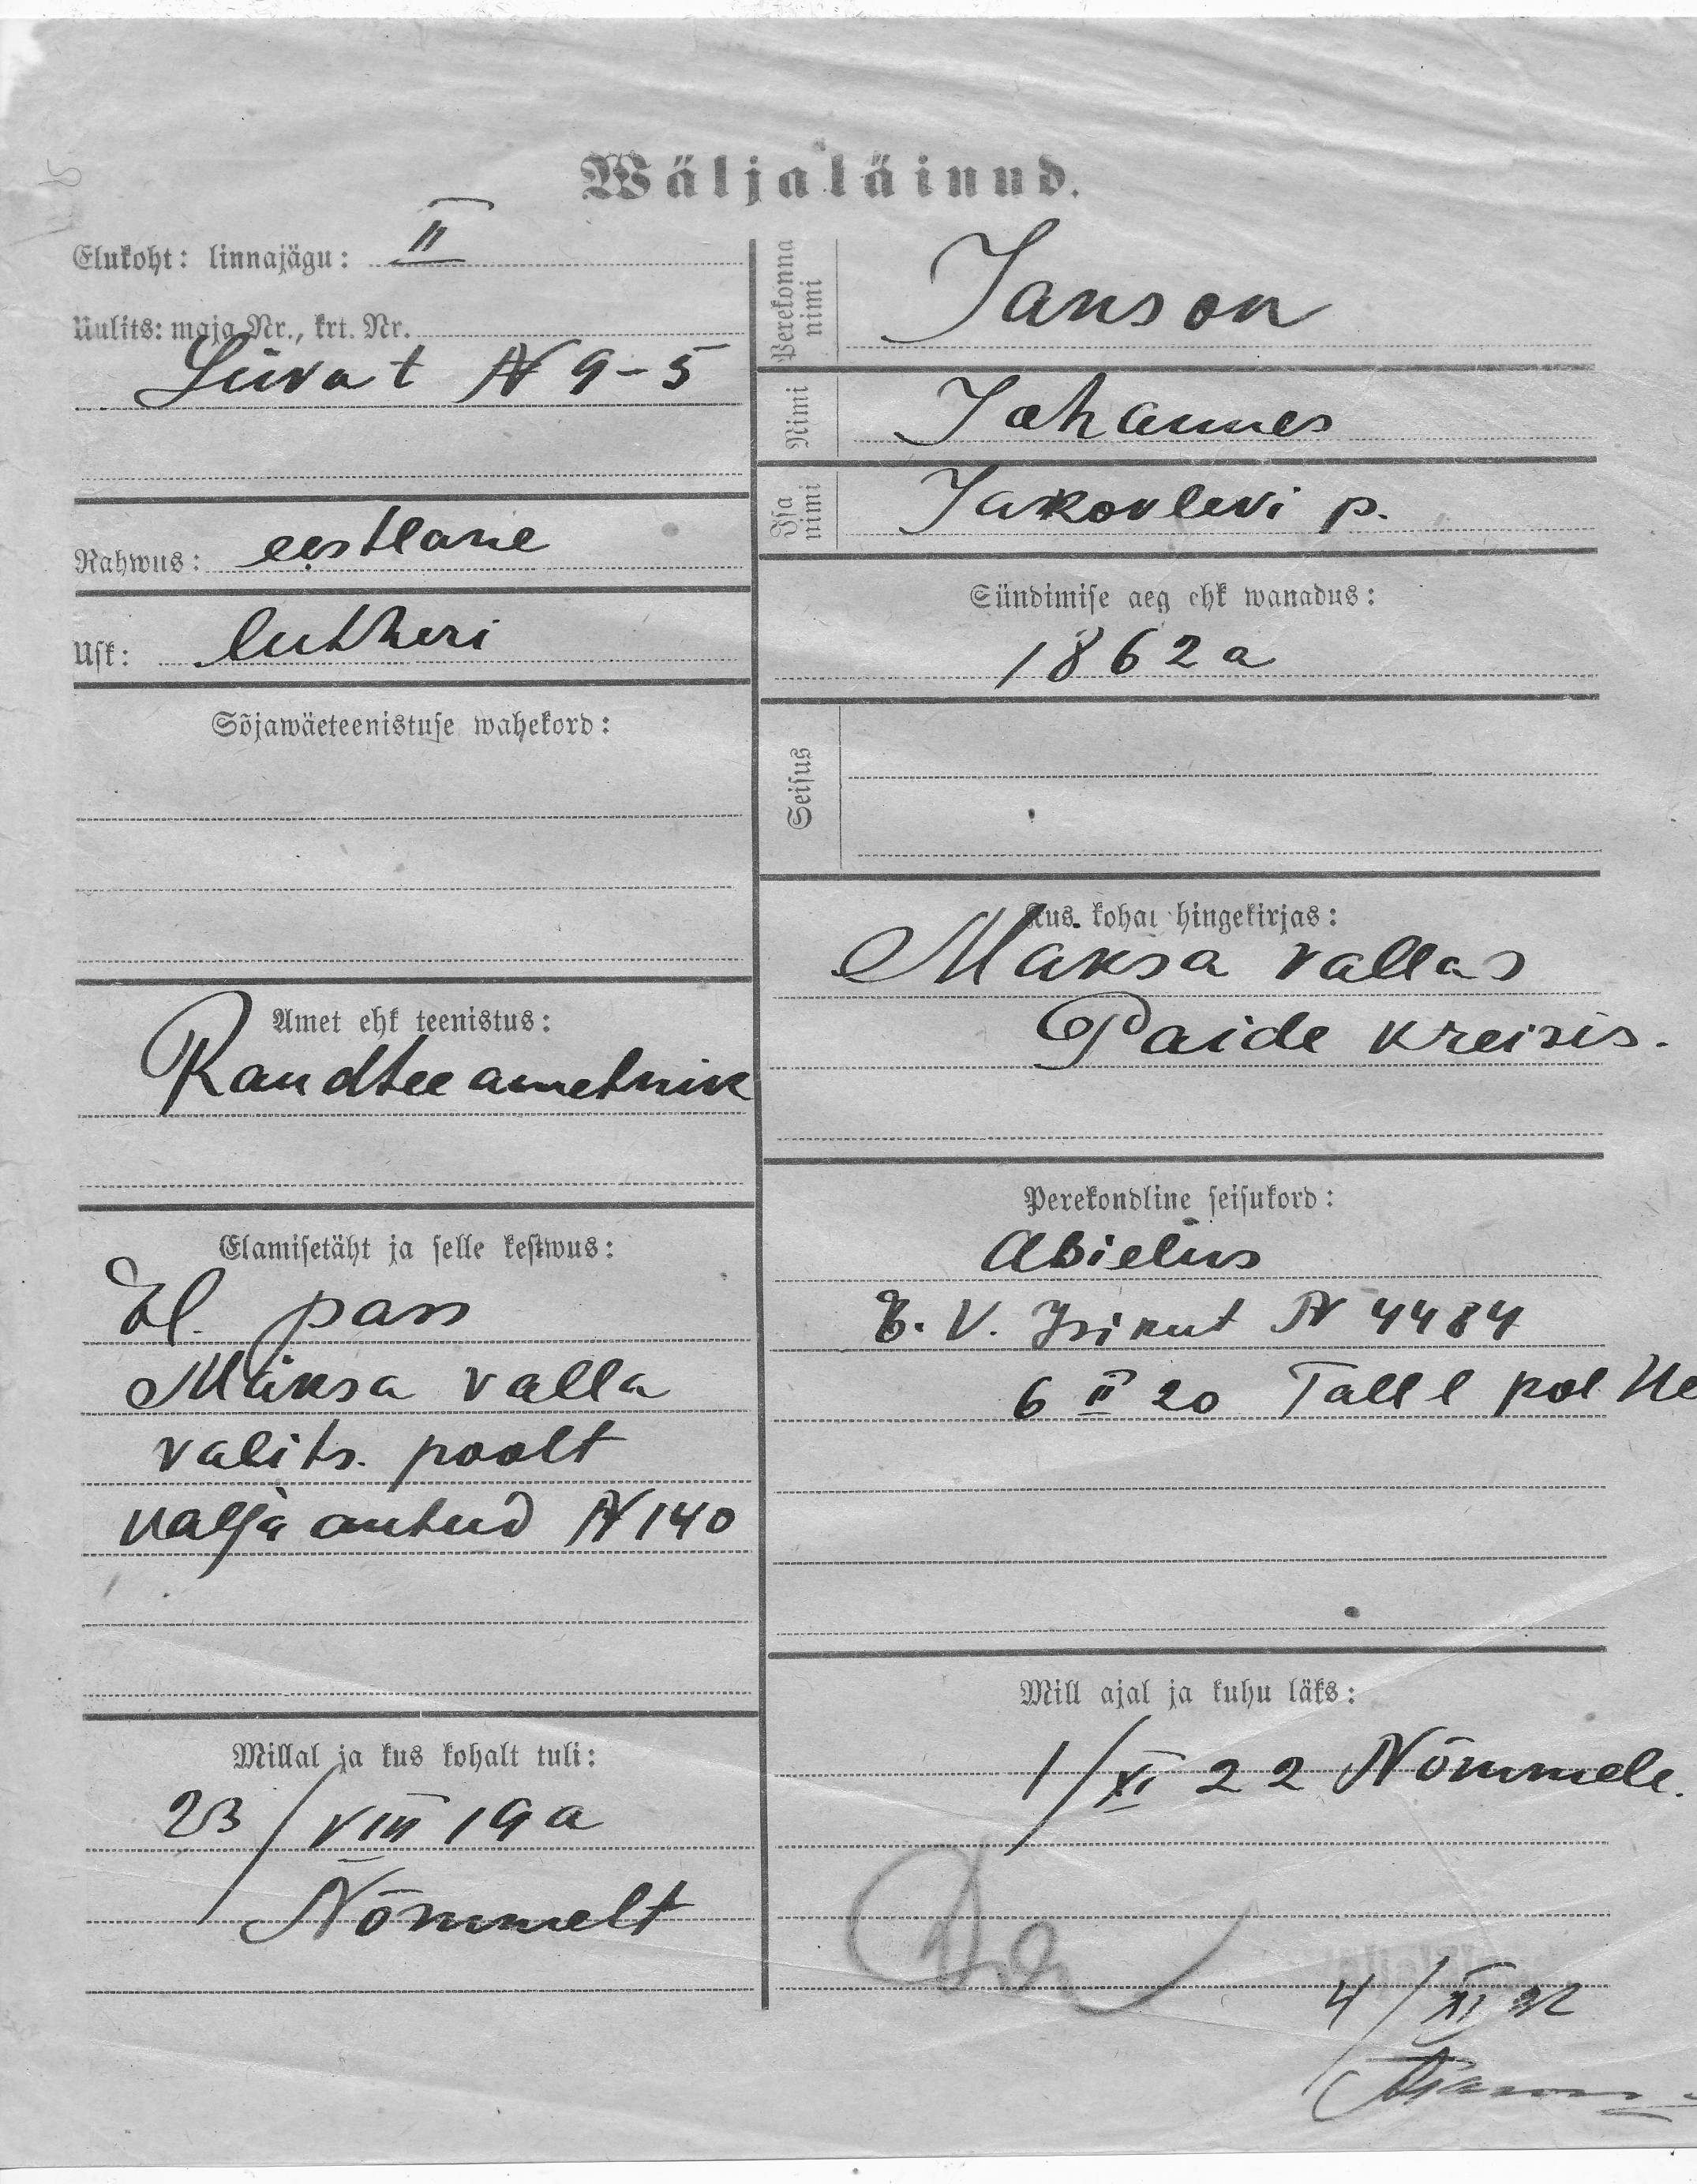 Wäljaläinud.
Elukoht: linnajägu: II
Uulits: maja Nr., krt. Nr.
Liiva t № 9-5
Rahwus: eestlane
Usk: lutheri
Sõjawäeteenistuse wahekord:
Amet ehk teenistus:
Raudtee ametnik
Elamisetäht ja selle kestwus:
El. pass
Mäksa valla
valits. poolt
välja antud № 140
Millal ja kus kohalt tuli:
23/VIII 19 a
Nõmmelt
Perekonna nimi
Janson
Nimi
Johannes
Isa nimi
Jakovlevi p.
Sündimise aeg ehk wanadus:
1862 a
Seisus
Kus kohal hingekirjas:
Maksa vallas
Paide kreisis.
Perekondline seisukord:
Abielus
E. V. Isikut № 4484
6 II 20 Tall l pol
Mill ajal ja kuhu läks:
1/XI 22 Nõmmele.
4/XI 22